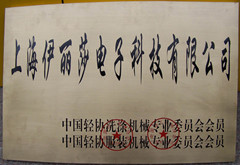 上海伊丽莎电子科技有限公司
中国轻协洗涤机械专业委员会会员
中国轻协服装机械专业委员会会员